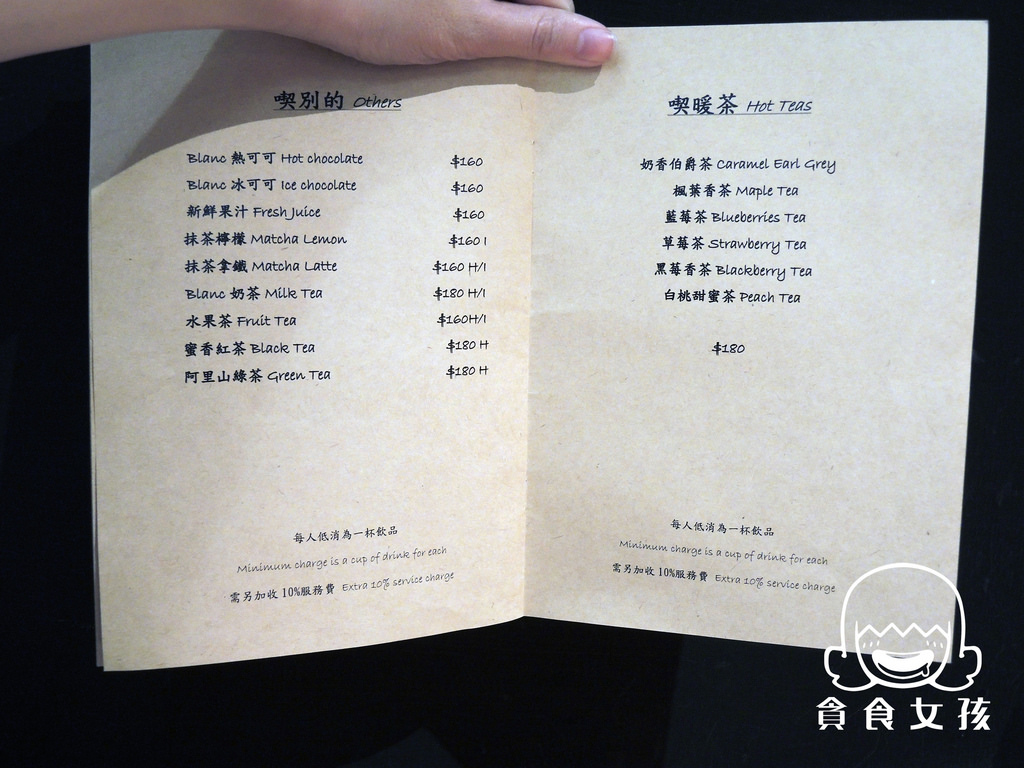 喫別的 Others
Blanc 熱可可 Hot chocolate $160
Blanc 冰可可 Ice chocolate $160
新鮮果汁 Fresh Juice $160
抹茶檸檬 Matcha Lemon $160 I
抹茶拿鐵 Matcha Latte $160 H/I
Blanc 奶茶 Milk Tea $180 H/I
水果茶 Fruit Tea $160H/I
蜜香紅茶 Black Tea $180 H
阿里山綠茶 Green Tea $180 H
每人低消為一杯飲品
Minimum charge is a cup of drink for each
需另加收 10%服務費 Extra 10% service charge
喫暖茶 Hot Teas
奶香伯爵茶 Caramel Earl Grey
楓葉香茶 Maple Tea
藍莓茶 Blueberries Tea
草莓茶 Strawberry Tea
黑莓香茶 Blackberry Tea
白桃甜蜜茶 Peach Tea
$180
每人低消為一杯飲品
Minimum charge is a cup of drink for each
需另加收 10%服務費 Extra 10% service charge
貪食女孩